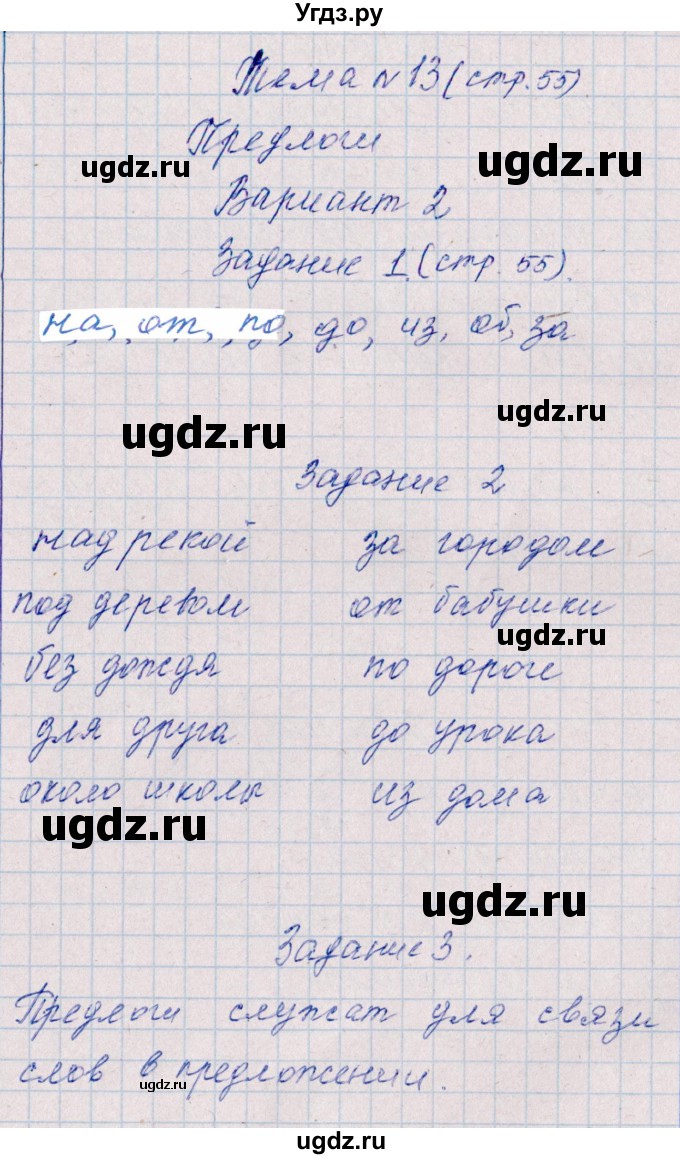 Угдз.ру
Тема №13 (стр.55)
ugdz.ru
ugdz.ru
Предлоги
Вариант 2
Задание 1 (стр. 55).
на, от, по, до, из, об, за
ugdz.ru
ugdz.ru
Задание 2
над рекой за городом
под деревом от бабушки
ugdz.ru
без дождя по дороге
для друга до урока
около школы из дома
ugdz.ru
ugdz.ru
Задание 3.
Предлоги служат для связи
слов в предложении.
ugdz.ru
ugdz.ru